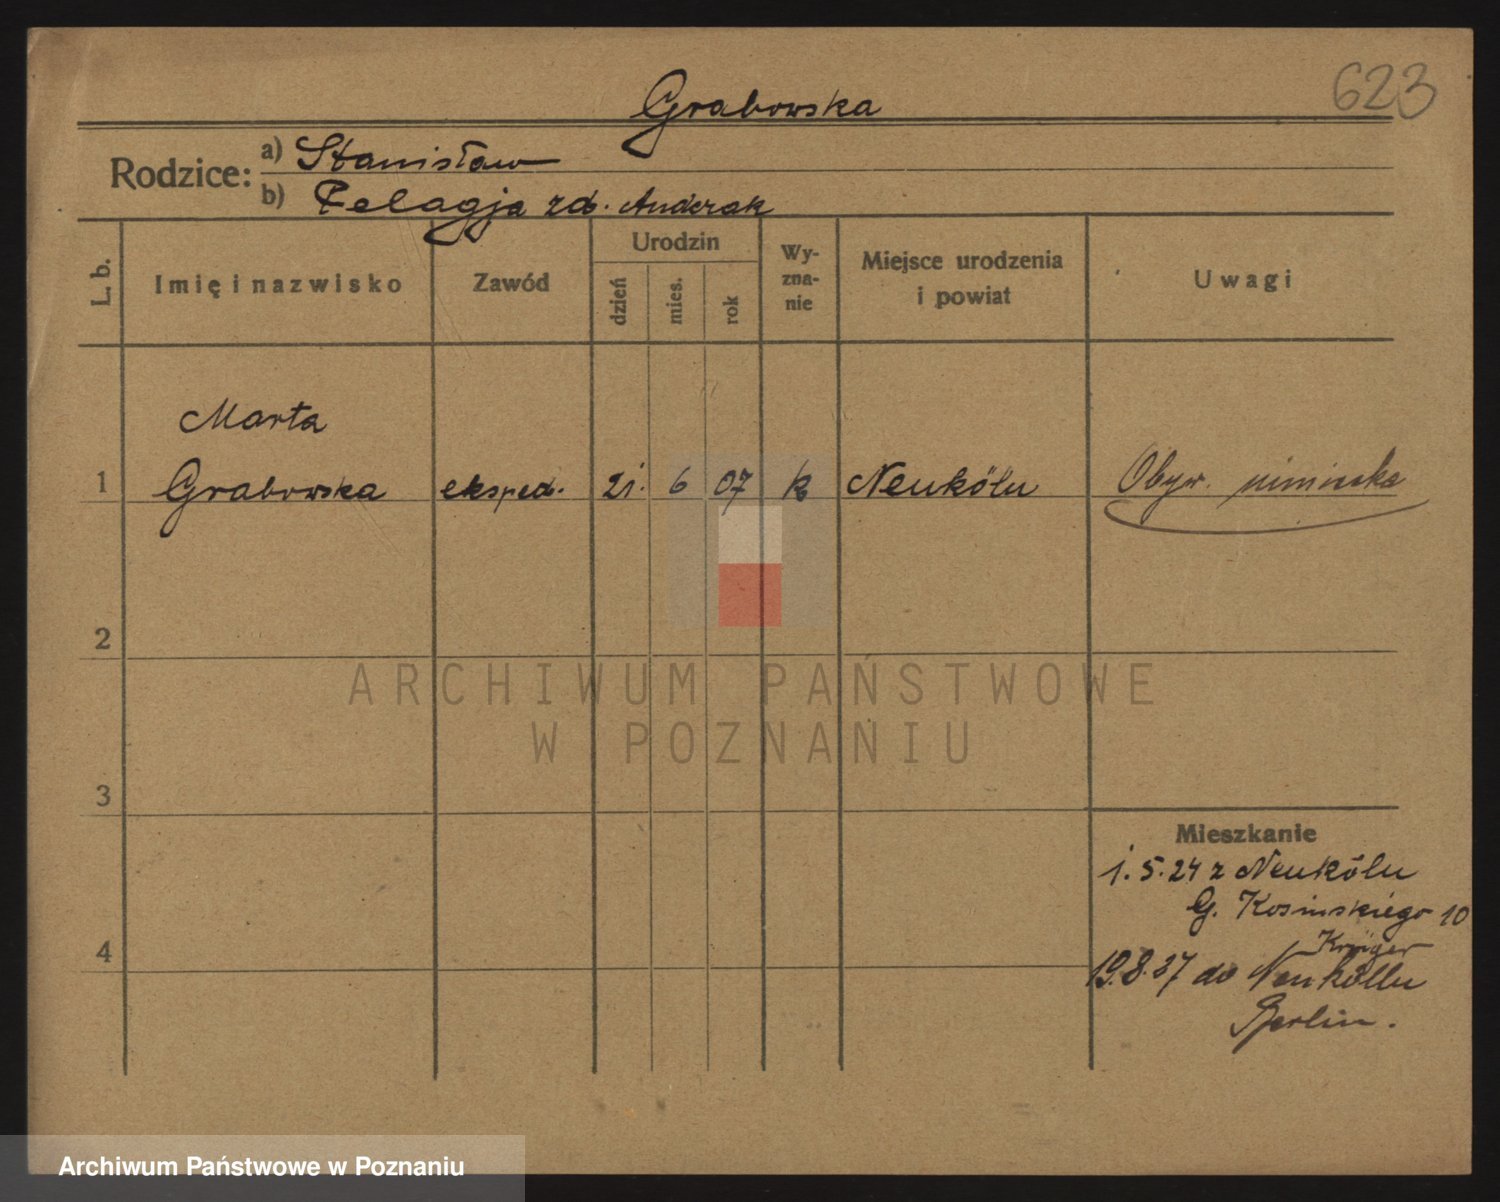 623
Grabowska
Rodzice:
a) Stanisław
b) Pelagja zd. Anderak
L. b.
Imię i nazwisko
Zawód
Urodzin
dzień
mies.
rok
Wy-
zna-
nie
Miejsce urodzenia
i powiat
Uwagi
Marta
1 Grabowska eksped. 21. 6 07 k Neukölu Obyw. nimiecka
2
ARCHIWUM PAŃSTWOWE
W POZNANIU
3
Mieszkanie
1. 5. 24 z Neukölu
G. Kosinskiego 10
Krüger
4
19.8.27 do Neuköllu
Berlin.
Archiwum Państwowe w Poznaniu